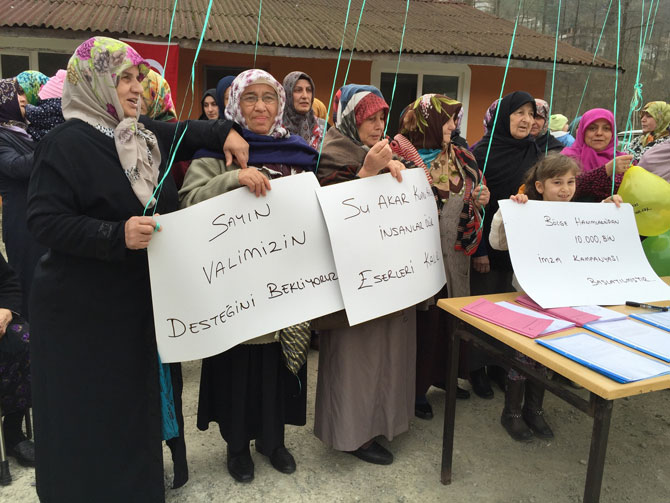 SAYIN
VALİMİZİN
DESTEĞİNİ BEKLİYORUZ
SU AKAR KUM
İNSANLAR ÖLÜR
ESERLERİ KALIR
BÖLGE HANIMLARINDAN
10.000, BİN
İMZA KAMPANYASI
BAŞLATILMIŞTIR